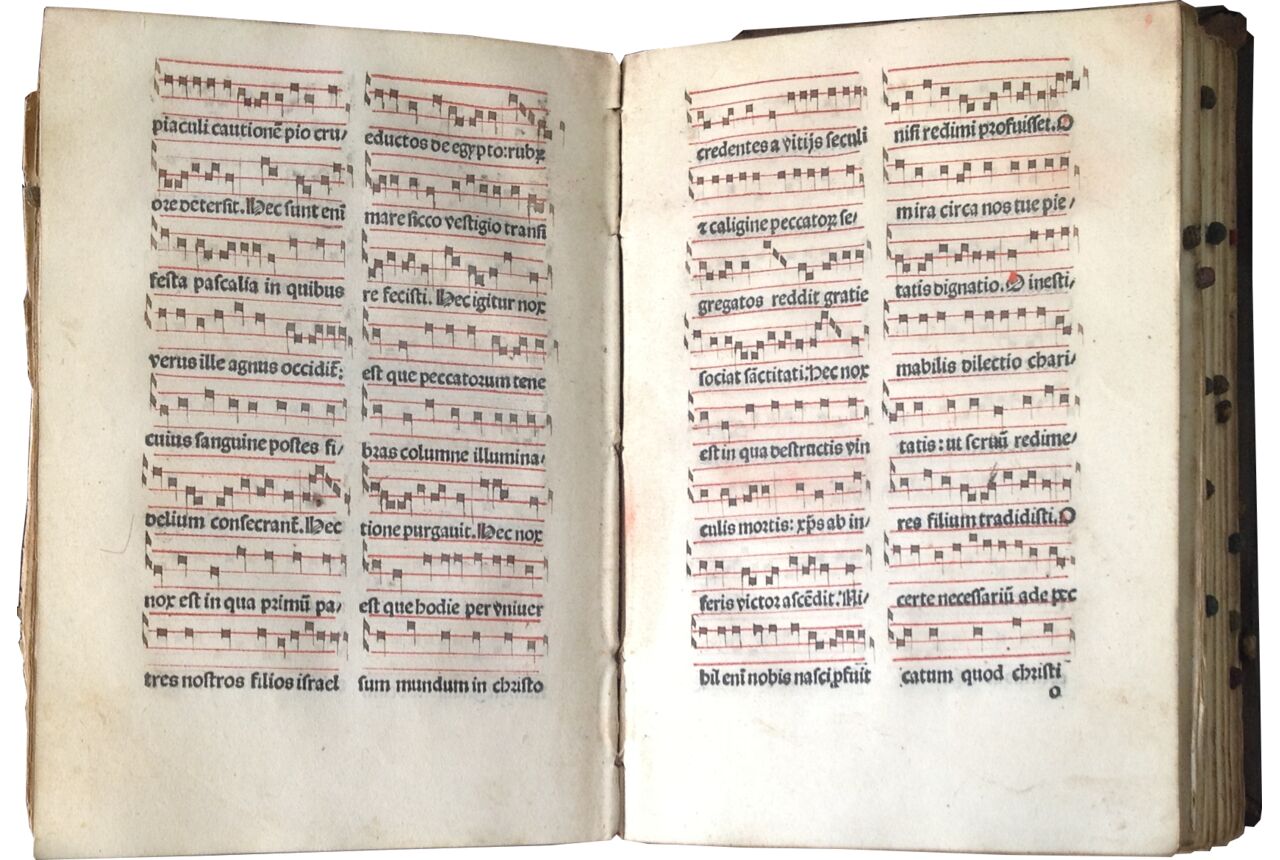 piaculi cautionē pio cru/
ore detersit. Hec sunt eni̅
festa pascalia in quibus
verus ille agnus occidit̄:
cuius sanguine postes fi/
delium consecrant̄. Hec
nox est in qua primū pa/
tres nostros filios israel
eductos de egypto: rubꝝ
mare sicco vestigio transi
re fecisti. Hec igitur nox
est que peccatorum tene
bras columne illumina/
tione purgauit. Hec nox
est que hodie per vniuer
sum mundum in christo
credentes a vitijs seculi
⁊ caligine peccatoꝝ se/
gregatos reddit gratie
sociat sāctitati. Hec nox
est in qua destructis vin
culis mortis: xp̄s ab in/
feris victor ascēdit. Ni/
hil eni̅ nobis nasci ꝓfuit
nisi redimi profuisset. O
mira circa nos tue pie/
tatis dignatio. O inesti/
mabilis dilectio chari/
tatis: ut seruū redime/
res filium tradidisti. O
certe necessariū ade pec
catum quod christi
o